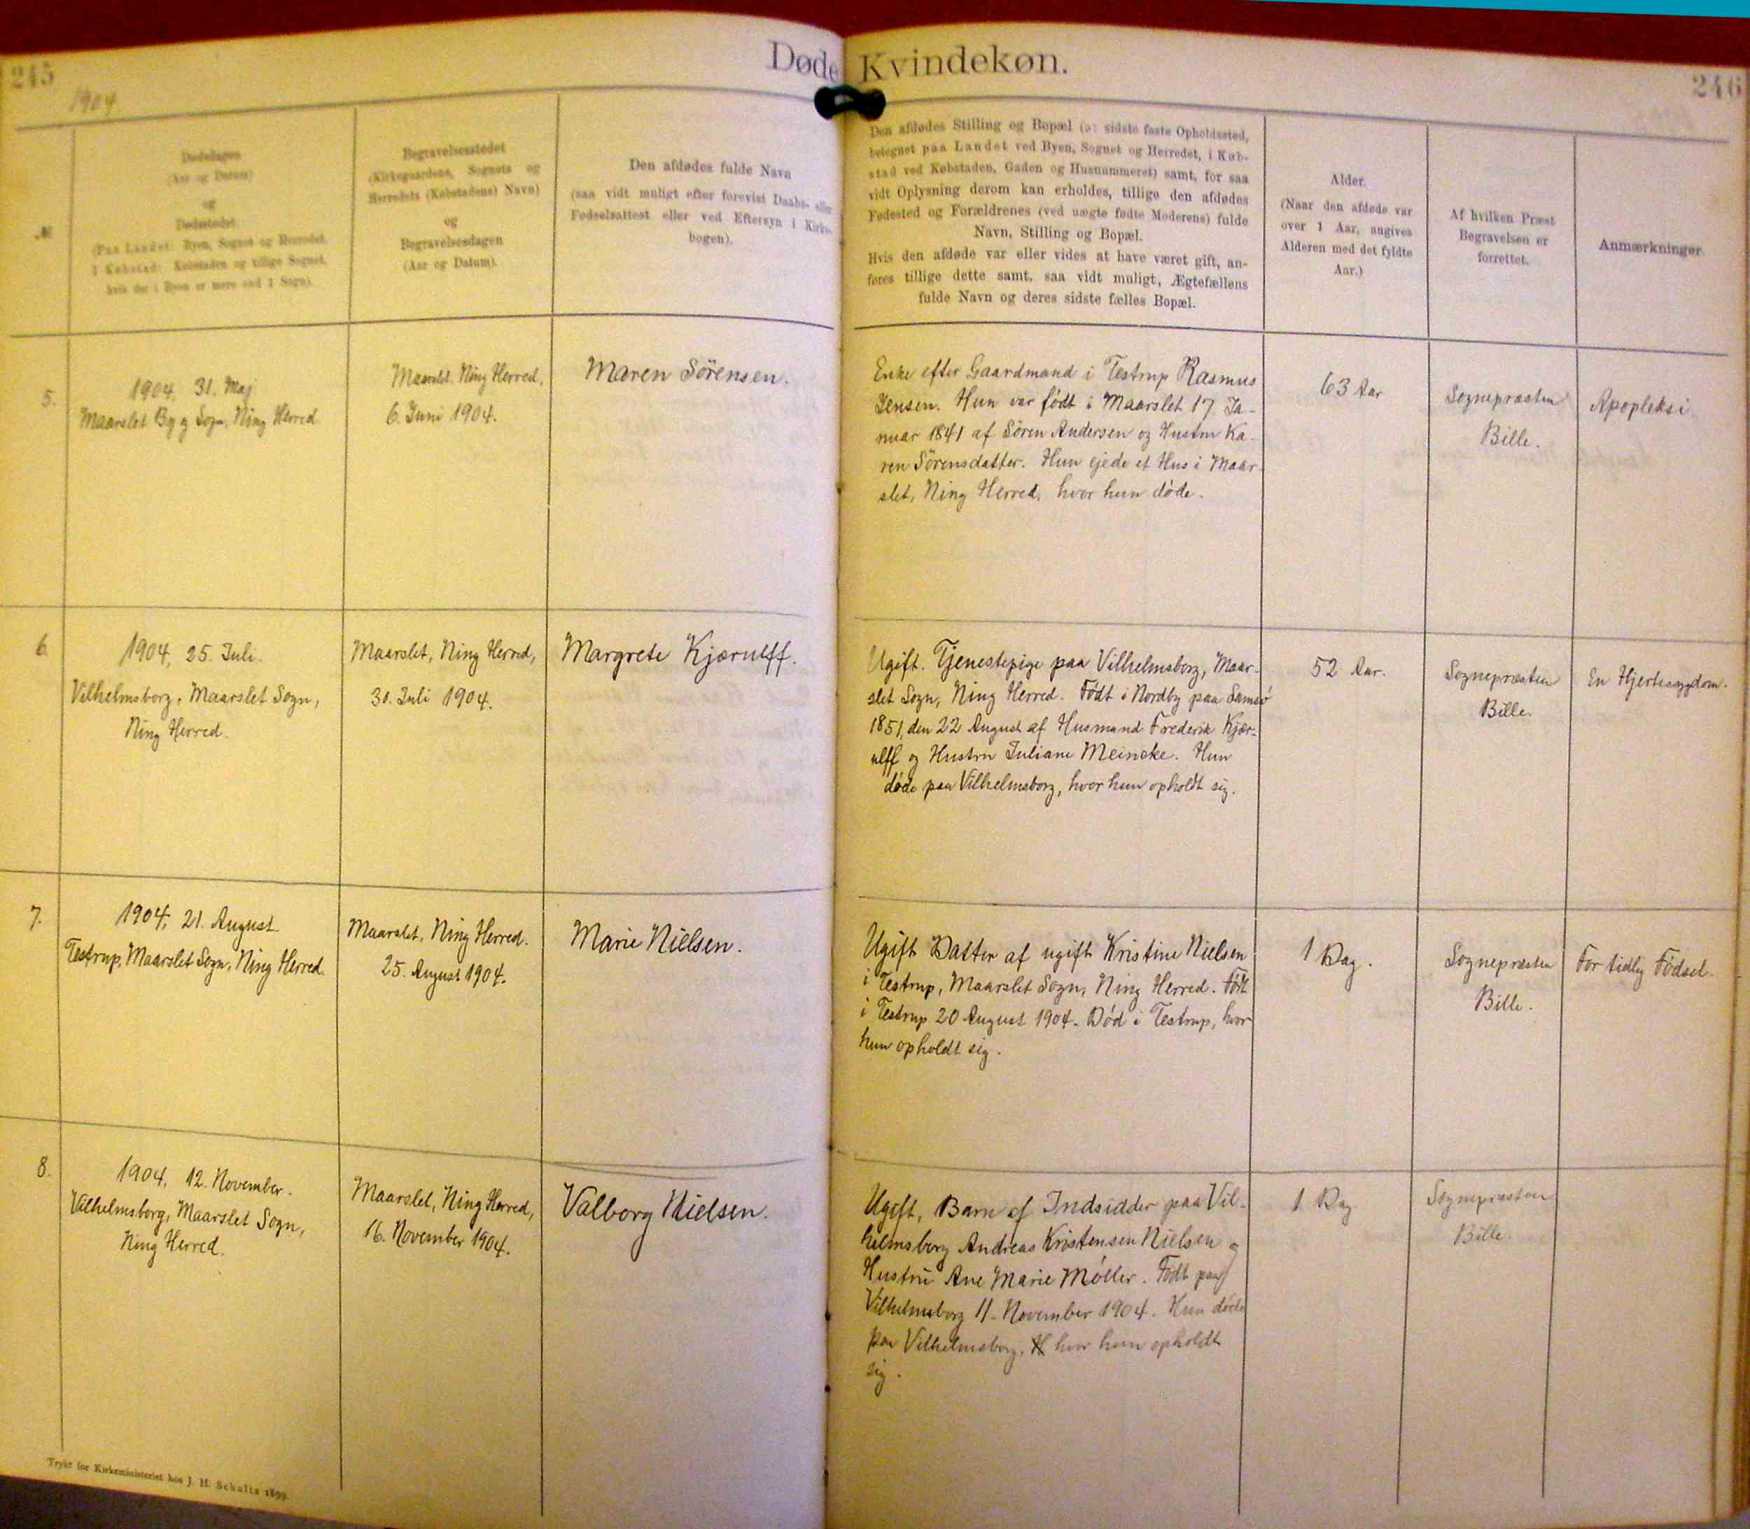 245
Døde Kvindekøn.
246
1904
№
Dødsdagen
(Aar og Datum)
og
Dødsstedet
(Paa Landet: Byen, Sognet og Herredet,
I Købstad: Købstaden og tillige Sognet,
hvis der i Byen er mere end 1 Sogn).
Begravelsesstedet
(Kirkegaardens, Sognets og
Herredets (Købstadens) Navn)
og
Begravelsesdagen
(Aar og Datum).
Den afdødes fulde Navn
(saa vidt muligt efter forevist Daabs- eller
Fødselsattest eller ved Eftersyn i Kirke-
bogen).
Den afdødes Stilling og Bopæl (o: sidste faste Opholdssted,
betegnet paa Landet ved Byen, Sognet og Herredet, i Køb-
stad ved Købstaden, Gaden og Husnummeret) samt, for saa
vidt Oplysning derom kan erholdes, tillige den afdødes
Fødested og Forældrenes (ved uægte fødte Moderens) fulde
Navn, Stilling og Bopæl.
Hvis den afdøde var eller vides at have været gift, an-
føres tillige dette samt, saa vidt muligt, Ægtefællens
fulde Navn og deres sidste fælles Bopæl.
Alder.
(Naar den afdøde var
over 1 Aar, angives
Alderen med det fyldte
Aar.)
Af hvilken Præst
Begravelsen er
forrettet.
Anmærkninger.
5.
1904, 31. Maj
Maarslet By og Sogn, Ning Herred
Maarslet. Ning Herred,
6. Juni 1904.
Maren Sörensen.
Enke efter Gaardmand i Testrup Rasmus
Jensen. Hun var født i Maarslet 17 Ja-
nuar 1841 af Sören Andersen og Hustru Ka-
ren Sörensdatter. Hun ejede et Hus i Maar-
slet, Ning Herred, hvor hun døde.
63 Aar
Sognepræsten
Bille.
Apopleksi
6.
1904, 25. Juli.
Vilhelmsborg, Maarslet Sogn,
Ning Herred.
Maarslet, Ning Herred,
31. Juli 1904.
Margrete Kjærulff.
Ugift. Tjenestepige paa Vilhelmsborg, Maar-
slet Sogn, Ning Herred. Født i Nordby paa Samsø
1851, den 22 August af Husmand Frederik Kjær-
ulff og Hustru Juliane Meineke. Hun
døde paa Vilhelmsborg, hvor hun opholdt sig.
52 Aar.
Sognepræsten
Bille.
En Hjertesygdom.
7.
1904, 21. August
Testrup, Maarslet Sogn, Ning Herred.
Maarslet, Ning Herred.
25. August 1904.
Marie Nielsen.
Ugift Datter af ugift Kristine Nielsen
i Testrup, Maarslet Sogn, Ning Herred. Født
i Testrup 20 August 1904. Død i Testrup, hvor
hun opholdt sig.
1 Dag.
Sognepræsten
Bille.
For tidlig Födsel.
8.
1904, 12. November.
Vilhelmsborg, Maarslet Sogn,
Ning Herred.
Maarslet, Ning Herred,
16. November 1904.
Valborg Nielsen.
Ugift, Barn af Indsidder paa Vil-
helmsborg Andreas Kristensen Nielsen og
Hustru Ane Marie Möller. Født paa
Vilhelmsborg 11. November 1904. Hun døde
paa Vilhelmsborg, hvor hun opholdt
sig.
1 Dag
Sognepræsten
Bille.
Trykt for Kirkeministeriet hos J. H. Schultz 1899.